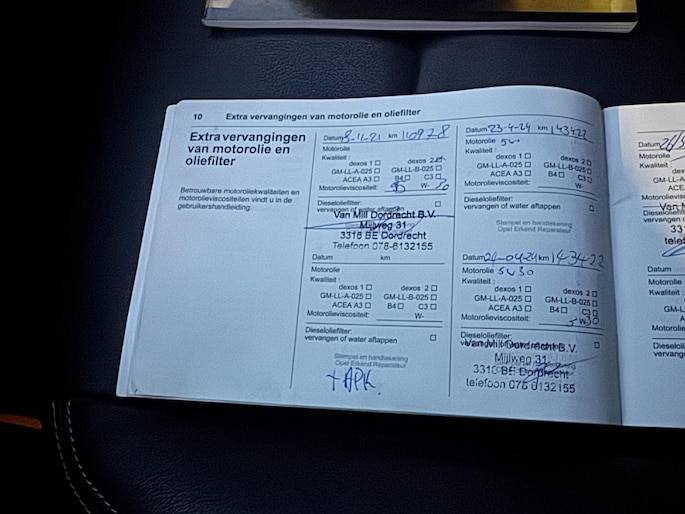 10 Extra vervangingen van motorolie en oliefilter
Extra vervangingen
van motorolie en
oliefilter
Betrouwbare motoroliekwaliteiten en
motorolieviscositeiten vindt u in de
gebruikershandleiding.
Datum -11-21 km 110978
Motorolie
Kwaliteit :
dexos 1 □ dexos 2
GM-LL-A-025 □ GM-LL-B-025 □
ACEA A3 □ B4 □ C3
Motorolieviscositeit: W- 30
Dieseloliefilter:
vervangen of water aftappen □
Van Mill Dordrecht B.V.
Mijlweg 31
3316 BE Dordrecht
Telefoon 078-6132155
Datum km
Motorolie
Kwaliteit :
dexos 1 □ dexos 2 □
GM-LL-A-025 □ GM-LL-B-025 □
ACEA A3 □ B4 □ C3 □
Motorolieviscositeit: W-
Dieseloliefilter:
vervangen of water aftappen □
Stempel en handtekening
Opel Erkend Reparateur
+ APK.
Datum 23-4-24 km 143422
Motorolie 5w
Kwaliteit :
dexos 1 □ dexos 2 □
GM-LL-A-025 □ GM-LL-B-025 □
ACEA A3 □ B4 □ C3 □
Motorolieviscositeit: W-
Dieseloliefilter:
vervangen of water aftappen □
Stempel en handtekening
Opel Erkend Reparateur
Datum 24-04-24 km 143422
Motorolie 5w30
Kwaliteit :
dexos 1 □ dexos 2 □
GM-LL-A-025 □ GM-LL-B-025 □
ACEA A3 □ B4 □ C3
Motorolieviscositeit: 5 W-30
Dieseloliefilter:
Van Mill Dordrecht B.V.
Mijlweg 31
3316 BE Dordrecht
telefoon 078 6132155
Datum
Motorolie
Kwaliteit :
GM-LL-A
ACEA
Motorolievis
Dieseloliefil
vervangen
Datum
Motorolie
Kwaliteit :
GM-L
AC
Motorolie
Dieselolie
vervang